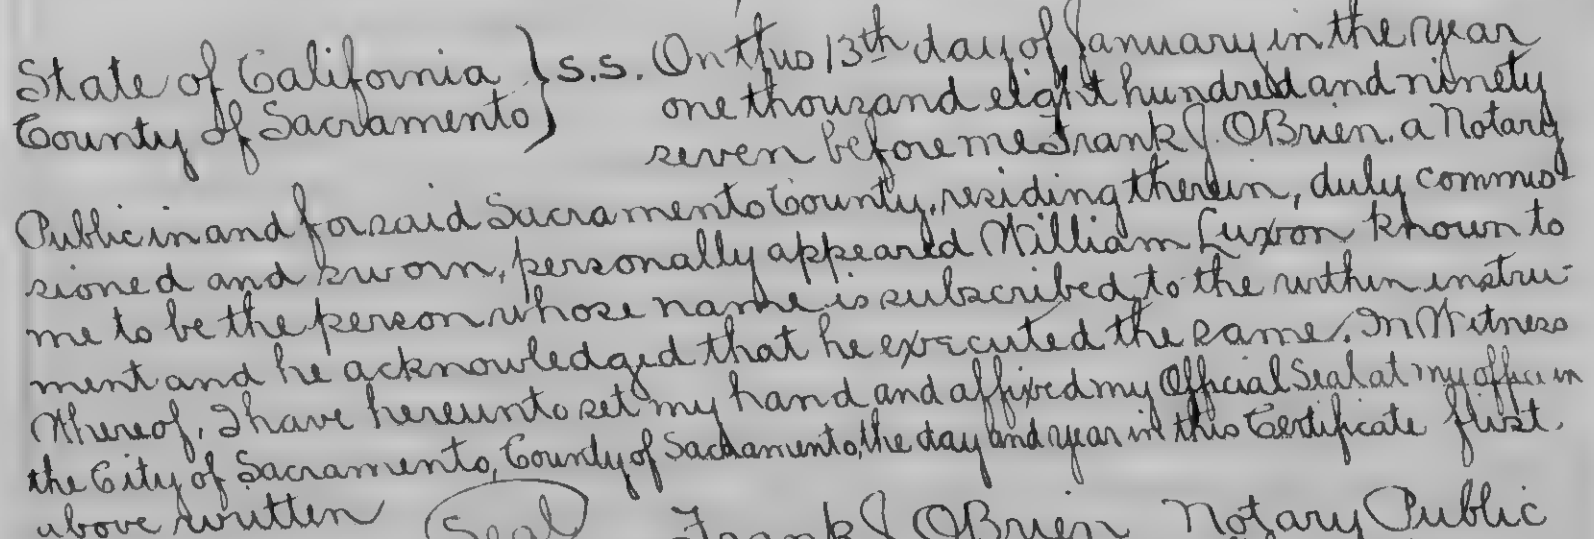 State of California } s.s. On this 13th day of January in the year
County of Sacramento } one thousand eight hundred and ninety
seven before me Frank J. OBrien. a Notary
Public in and for said Sacramento County, residing therein, duly commis-
sioned and sworn, personally appeared William Luxon known to
me to be the person whose name is subscribed to the within instru-
ment and he acknowledged that he executed the same. In Witness
Whereof, I have hereunto set my hand and affixed my Official Seal at my office in
the City of Sacramento, County of Sacramento, the day and year in this Certificate first.
above written (Seal) Frank J OBrien Notary Public